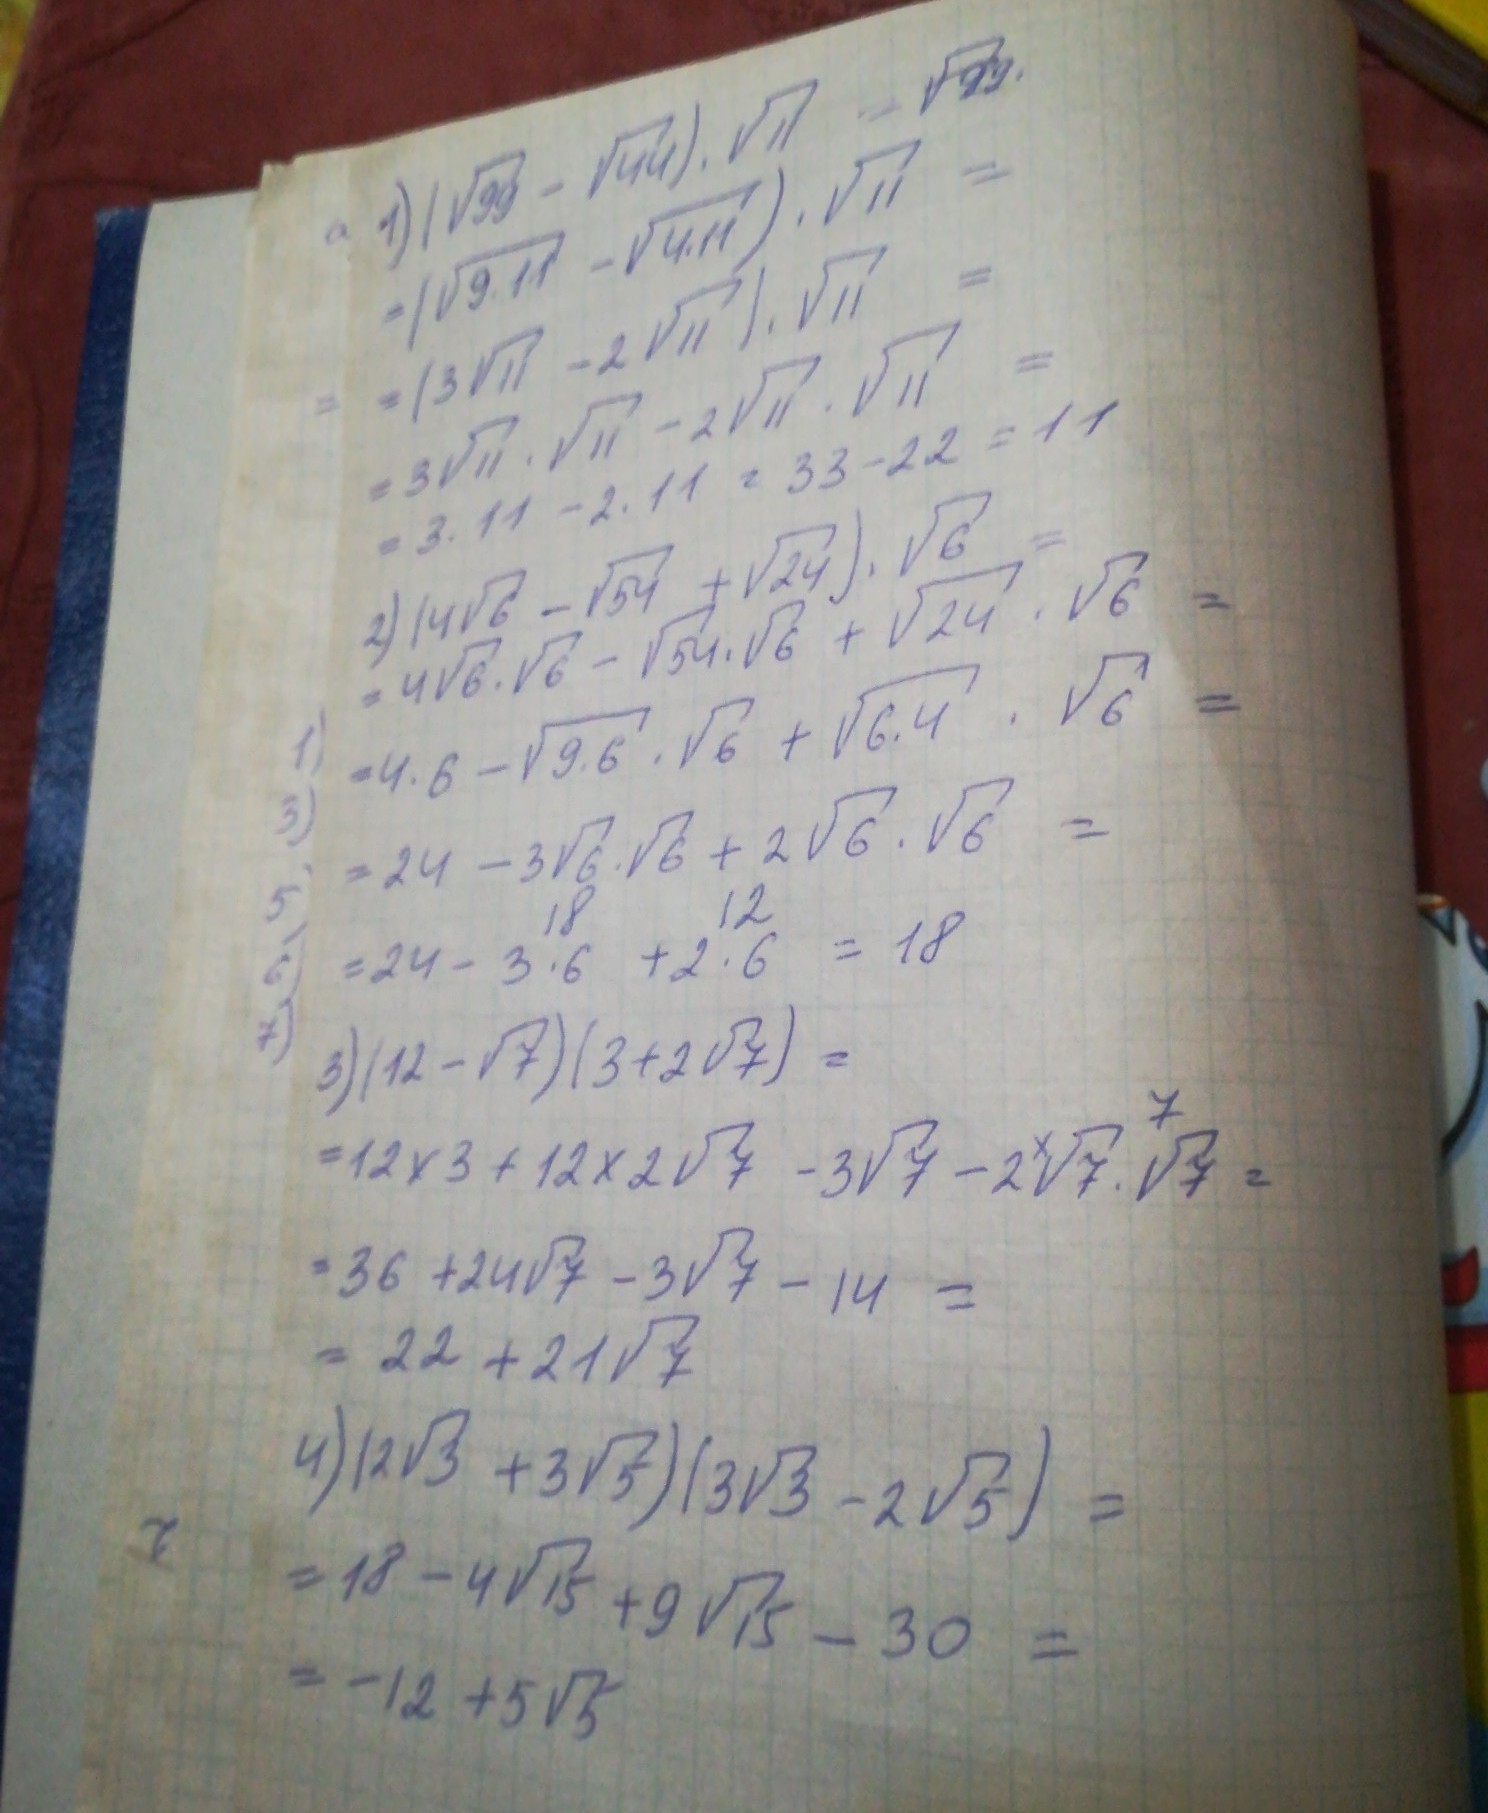 1) (√99 - √44) · √11 =
= (√9·11 - √4·11) · √11 =
= (3√11 - 2√11) · √11 =
= 3√11 · √11 - 2√11 · √11 =
= 3·11 - 2·11 = 33 - 22 = 11
2) (4√6 - √54 + √24) · √6 =
= 4√6 · √6 - √54 · √6 + √24 · √6 =
= 4·6 - √9·6 · √6 + √6·4 · √6 =
= 24 - 3√6 · √6 + 2√6 · √6 =
18 12
= 24 - 3·6 + 2·6 = 18
3) (12 - √7)(3 + 2√7) =
7
= 12×3 + 12×2√7 - 3√7 - 2×√7 · √7 =
= 36 + 24√7 - 3√7 - 14 =
= 22 + 21√7
4) (2√3 + 3√5)(3√3 - 2√5) =
= 18 - 4√15 + 9√15 - 30 =
= -12 + 5√5
1)
3)
5
6)
7)